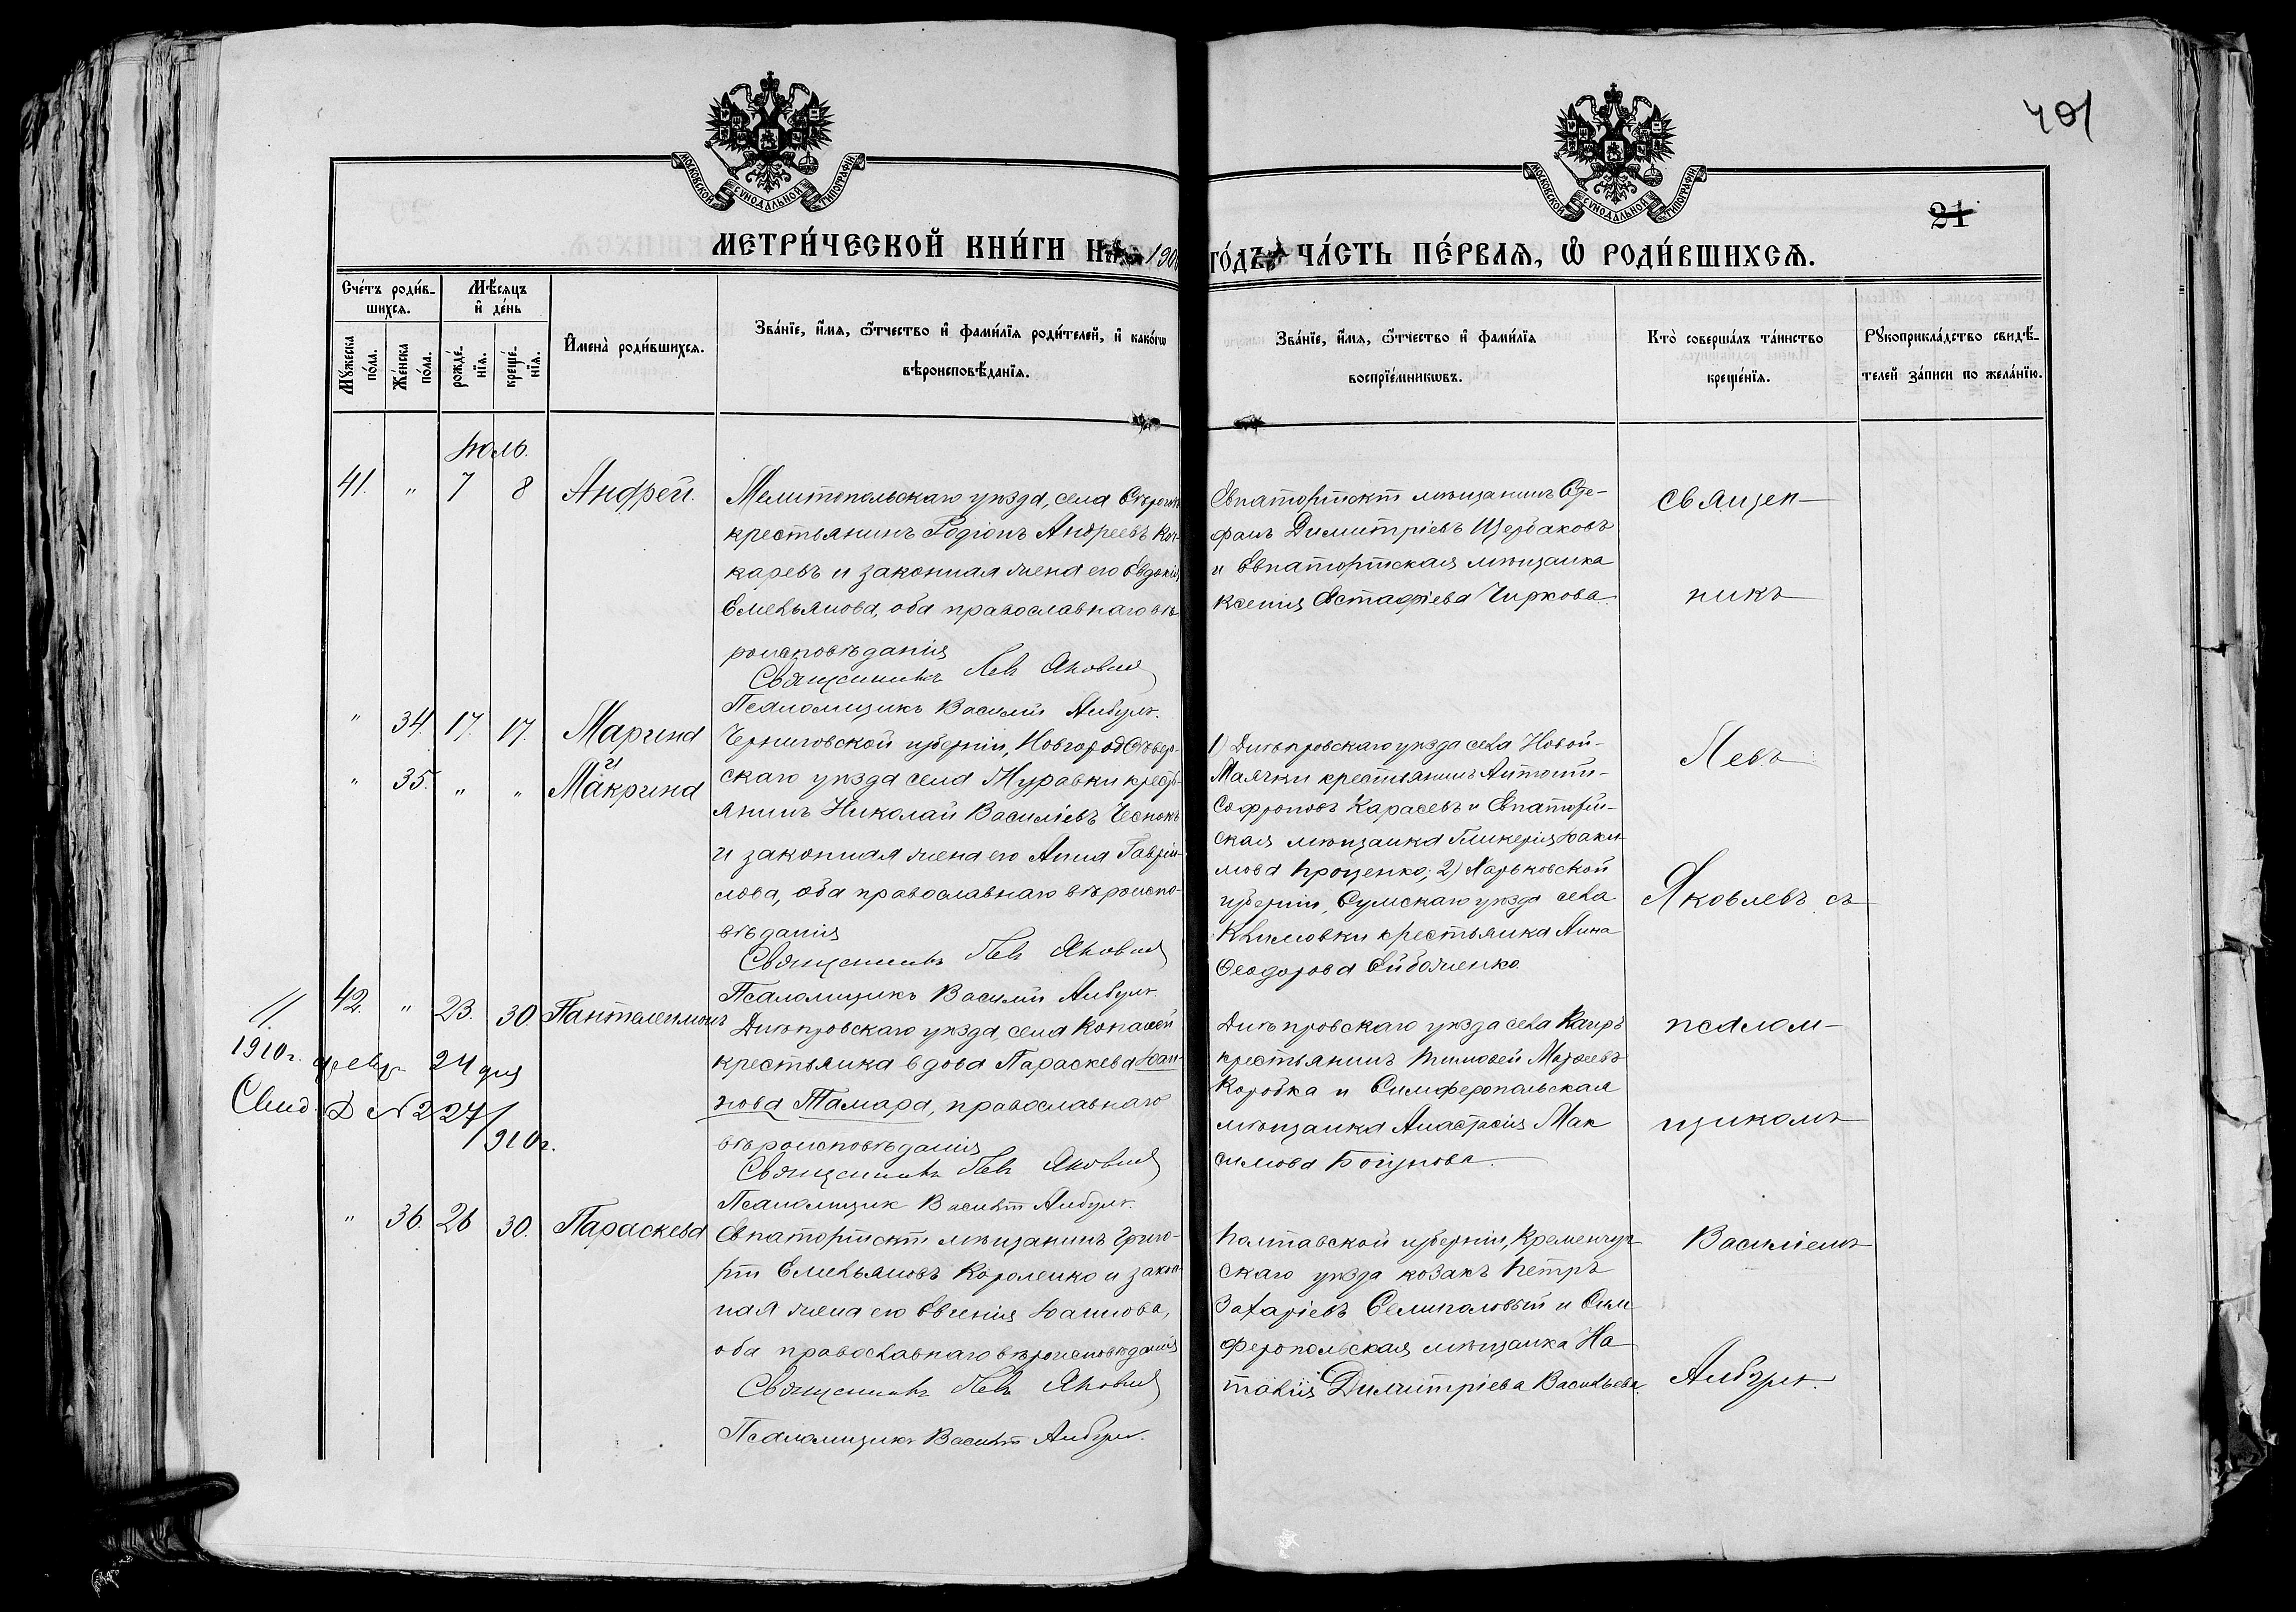 401
МОСКОВСКОЙ СѴНОДАЛЬНОЙ ТИПОГРАФІИ
МОСКОВСКОЙ СѴНОДАЛЬНОЙ ТИПОГРАФІИ
21
МЕТРИ́ЧЕСКОЙ КНИ́ГИ НА 190
ГО́ДЪ ЧА́СТЬ ПЕ́РВАЯ, Ѡ РОДИ́ВШИХСѦ.
Сче́тъ роди́в-
шихсѧ.
Мѣ́сѧцъ
и҆ де́нь
Мꙋ́жеска по́ла.
Же́нска по́ла.
рожде́-нїѧ.
креще́-нїѧ.
И҆мена̀ роди́вшихсѧ.
Зва́нїе, и҆́мѧ, ѻ҆́тчество и҆ фами́лїѧ роди́телей, и҆ како́гѡ
вѣроисповѣ́данїѧ.
Зва́нїе, и҆́мѧ, ѻ҆́тчество и҆ фами́лїѧ
воспрїе́мникѡвъ.
Кто̀ соверша́лъ та́инство
креще́нїѧ.
Рꙋкоприкла́дство свидѣ́-
телей за́писи по жела́нїю.
Іюль.
41. " 7 8 Андрей.
Мелитопольскаго уѣзда, села
крестьянинъ Родіонъ Андреевъ Коч-
каревъ и законная жена его Евдокія
Емельянова, оба православнаго вѣ-
роисповѣданія
Священникъ Левъ Яковлев
Псаломщикъ Василій Анбулт.
Евпаторійскій мѣщанинъ Сте-
фанъ Димитріевъ Щербаковъ
и Евпаторійская мѣщанка
Ксенія Евстафіева Чиркова.
Священ-
никъ
" 34. 17. 17. Марина
и
" 35. " " Макрина
Черниговской губерніи, Новгородсѣвер-
скаго уѣзда села Муравки кресть-
янинъ Николай Василіевъ Чеснокъ
и законная жена его Анна Гаврии-
лова, оба православнаго вѣроиспо-
вѣданія
Священникъ Левъ Яковлев
Псаломщикъ Василій Анбулт.
1) Днѣпровскаго уѣзда села Новой-
Маячки крестьянинъ Антоній-
Софроновъ Карасевъ и Евпаторій-
ская мѣщанка Гликерія Іоаки-
мова Проценко; 2) Харьковской
губерніи, Сумскаго уѣзда села
Климовки крестьянка Анна
Ѳеодорова
Левъ
Яковлевъ съ
42. " 23. 30. Пантелеимонъ
11.
1910 г. февр. 24 дня
Свид. № 227/910 г.
Днѣпровскаго уѣзда, села Копаней
крестьянка вдова Параскева Іоан-
нова Тамара, православнаго
вѣроисповѣданія
Священникъ Левъ Яковлев
Псаломщик Василій Анбулт.
Днѣпровскаго уѣзда села Каиръ
крестьянинъ Тимофей Моѵсеевъ
Коробка и Симферопольская
мѣщанка Анастасія Мак
симова Богунова.
псалом-
щикомъ
" 36. 26 30. Параскева
Евпаторійскій мѣщанинъ Григо-
рій Емельяновъ Короленко и закон-
ная жена его Евгенія Іоаннова,
оба православнаго вѣроисповѣданія
Священникъ Левъ Яковлев
Псаломщикъ Василій Анбулт.
Полтавской губерніи, Кременчуг-
скаго уѣзда козакъ Петръ
Захаріевъ Семиполовый и Сим-
феропольская мѣщанка На-
талія Димитріева Васильева.
Василіемъ
Анбулт.